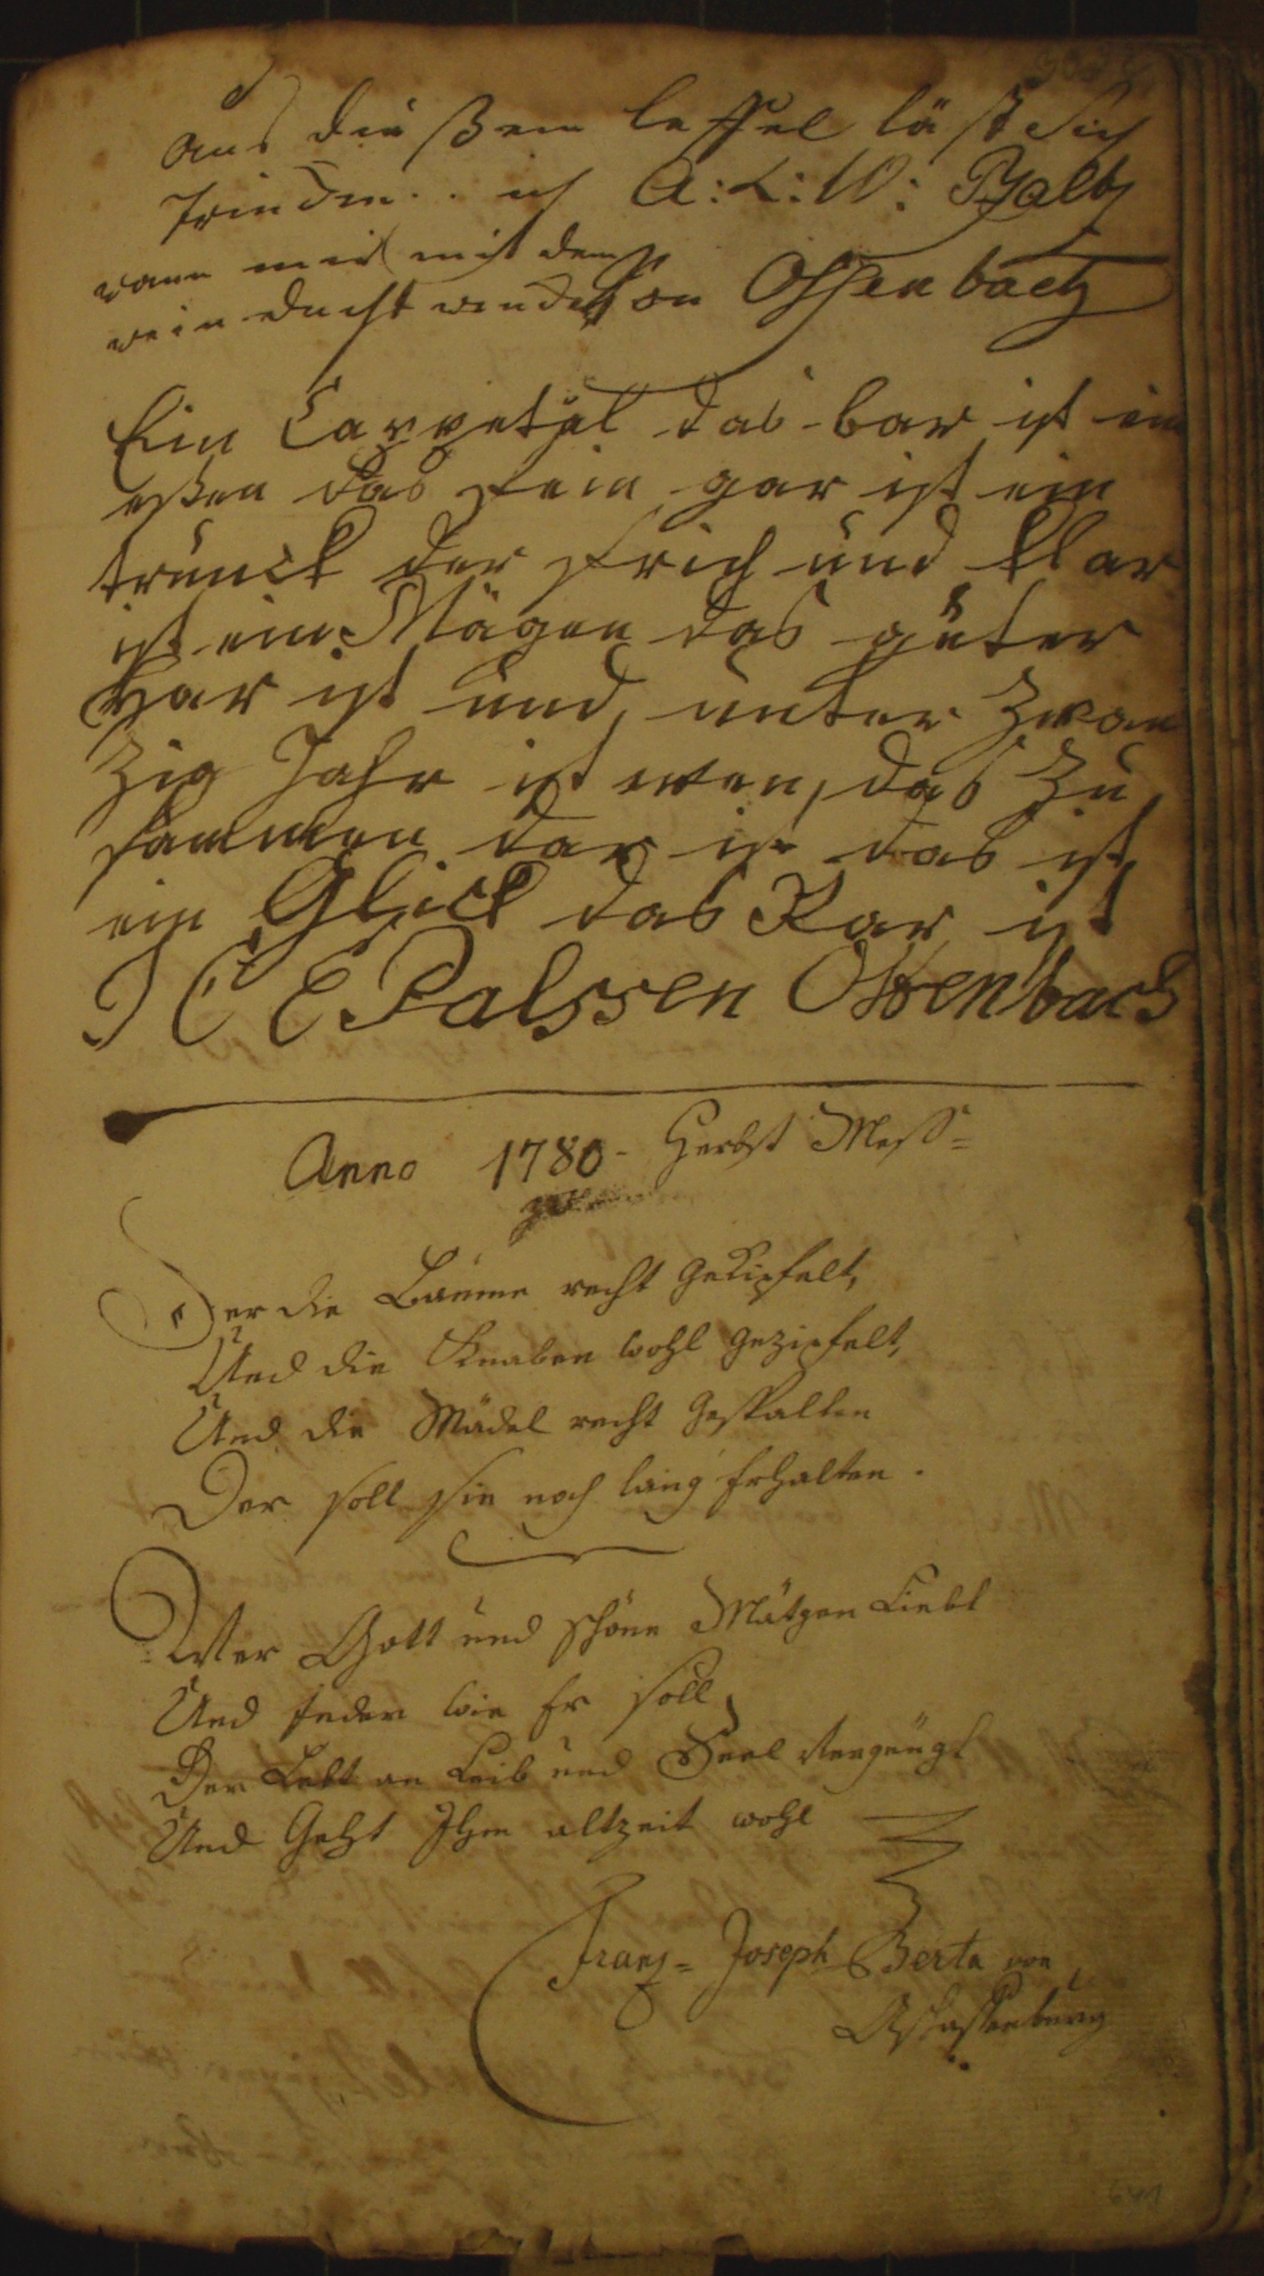 Aus dießem leffel läst Sich
Trincken .. ich A: L: W: Pfaltz
wann mir mit dem
wein von Offenbach
Ein Cappetal das bar ist ein
eßen das fein gar ist ein
trunck der frich und klar
ist ein Mägen das güter
har ist und unter Zwan
Zig Jahr ist wen das Zu
sammen dar ist das ist
ein Glick das Rar ist
J C E Palssen Offenbach
Anno 1780 - Herbst Mess=
Der die Bäume recht Gekipfelt,
Und die Knaben wohl gezipfelt,
Und die Mädel recht Gespalten
Der soll sie noch lang Erhalten.
Wer Gott und schöne Mätgen Liebt
Und Jeder wie Er soll
Der Lebt an Leib und Seel Vergnügt
Und Geht Ihm altzeit wohl
Franz= Joseph Berta von
Aschaffenburg
641